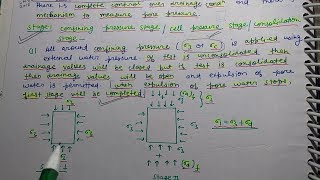 there is complete control over drainage cond^n and there is
mechanism to measure pore pressure.
Stage I confining pressure stage / cell pressure stage / consolidation
stage -
Q) All around confining pressure (σ3 or σc) is applied using
if test is unconsolidated then
drainage valves will be closed but if the test is consolidated
then drainage valve will be open and expulsion of pore
water is permitted. when expulsion of pore water stops,
first stage will be completed.
σ3
σ3
σ3
σ3
σ3
(σd)f
σ1 = σ3 + σd
(σd)f
Stage II